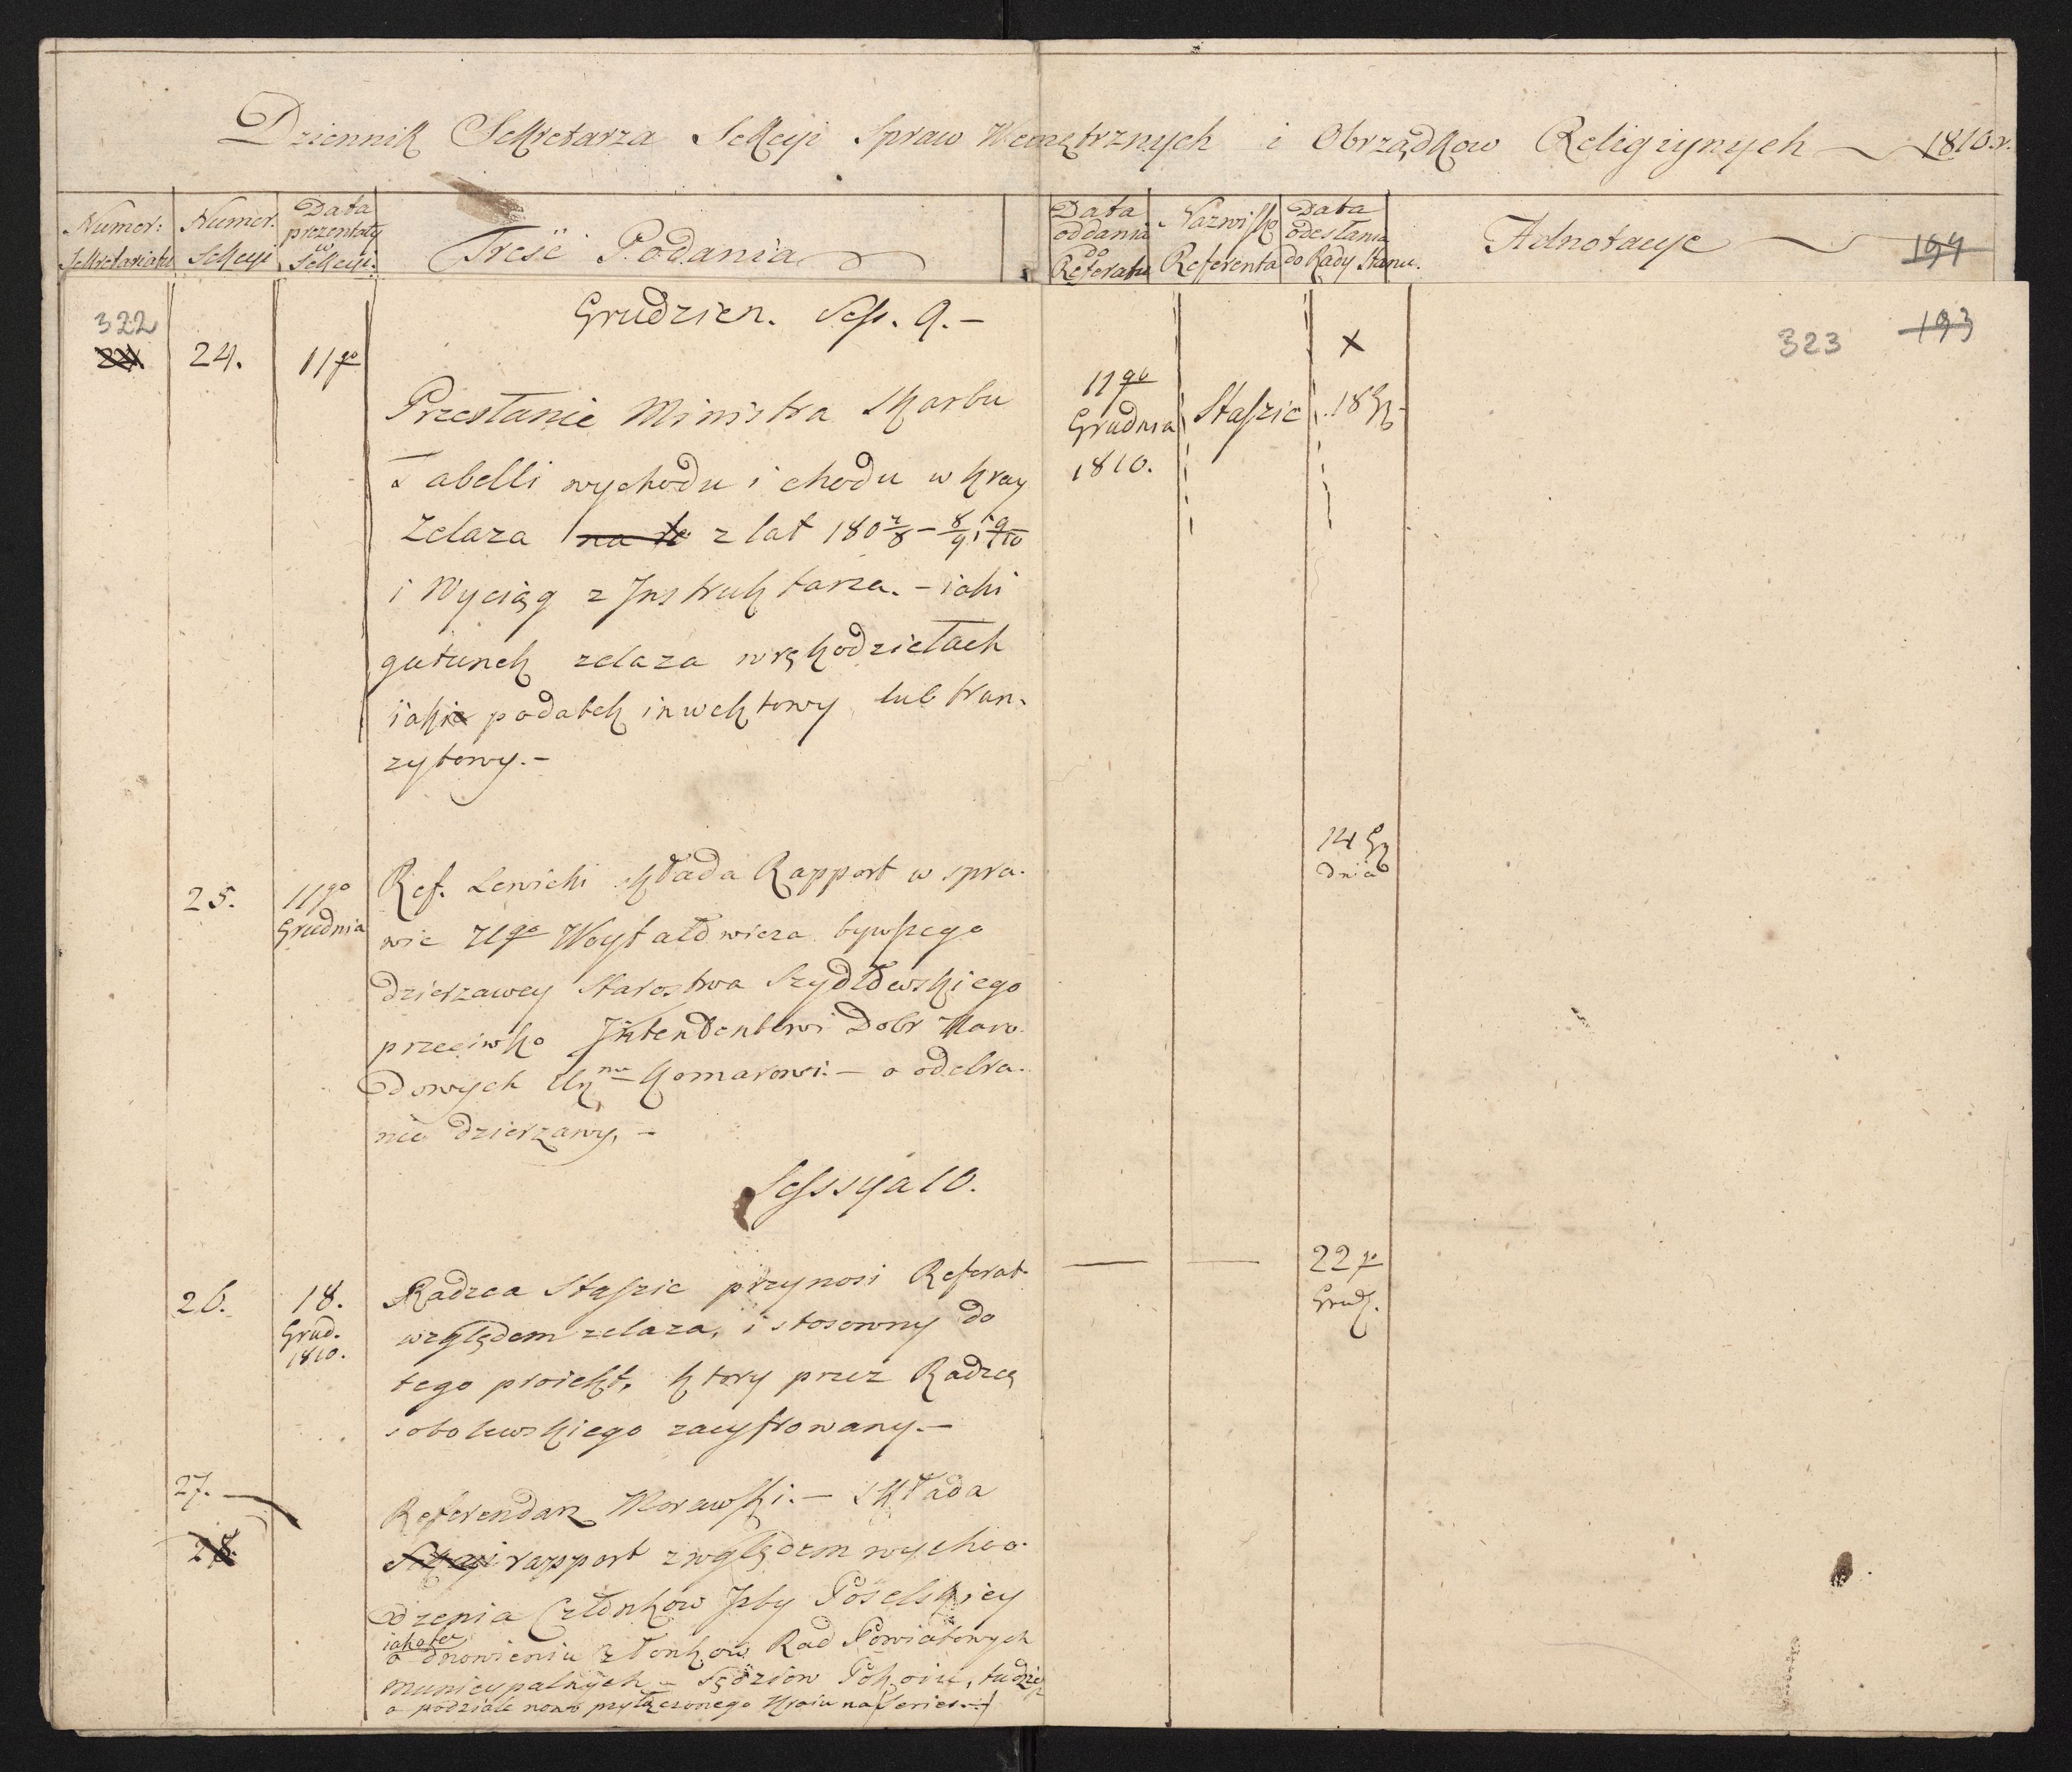 Dziennik Sekretarza Sekcyi Spraw Wewnętrznych i Obrządkow Religiynych 1810 r.
Numer: Sekretariatu
Numer. Sekcyi
Data prezentaty w Sekcyi.
Treść Podania
Data oddania do Referatu
Nazwisko Referenta
Data odesłania do Rady Stanu.
Adnotacye
194
322
323
193
Grudzien. Sess. 9.-
24.
11go
Przesłanie Ministra Skarbu
Tabelli wychodu i chodu w kray
Zelaza na te z lat 180 7/8 - 8/9 i 9/10
i Wyciąg z Instruktarza. - iaki
gatunek zelaza w rękodziełach
iakie podatek inwektowy lub tran-
zytowy.-
11go
Grudnia
1810.
Staszic
x
18 Gr
25.
11go
Grudnia
Ref. Lewicki składa Rapport w spra-
wie Ugo Woytałdwicza bywszego
dzierzawcy Starostwa Szydłowskiego
przeciwko Intendentowi Dobr Naro-
dowych Komarowi. - o odebra-
nie dzierzawy, -
14 Gr
dnia
Sessya 10.
26.
18.
Grud.
1810.
Radzca Staszic przynosi Referat
względem zelaza, i stosowny do
tego proiekt, ktory przez Radzcę
Sobolewskiego zacyfrowany.-
22go
Grud.
27.
28.
Referendarz Morawski. - Składa
rapport względem wycho-
dzenia Członkow Izby Poselskiey
iakoteż
odnowieniu Członkow Rad Powiatowych
municypalnych - Sędziow Pokoiu, tudzież
o podziale nowo przyłączonego Kraiu na Series.-